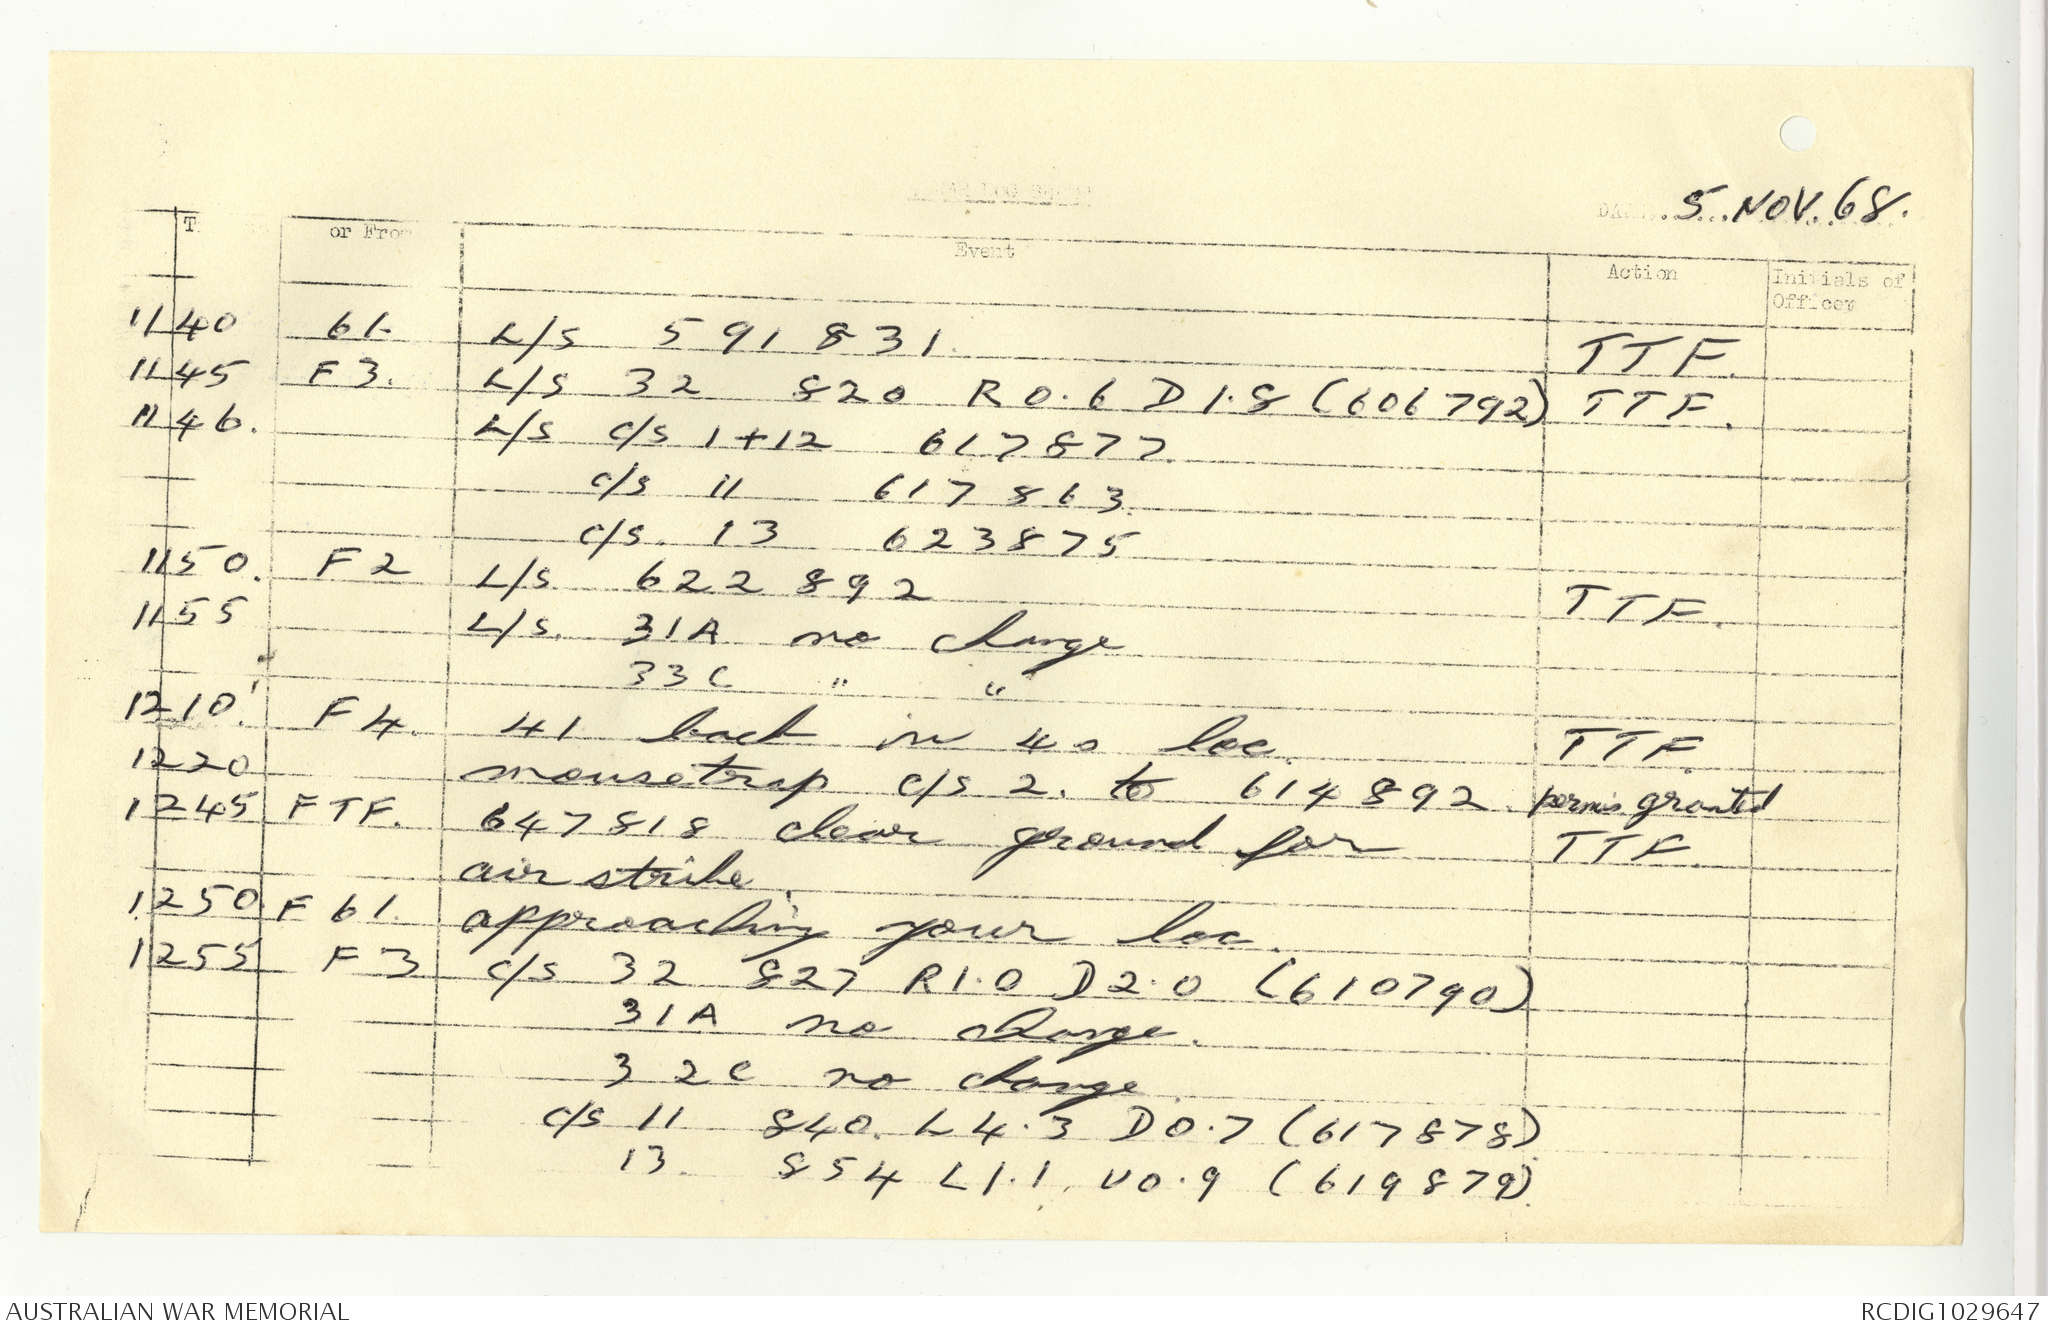 5 NOV. 68.
or From Event Action Initials of
Officer
1140 61. L/S 591831. TTF.
1145 F3. L/S 32 820 R0.6 D1.8 (606792) TTF.
1146. L/S c/s 1+12 617877.
c/s 11 617863.
c/s. 13 623875
1150. F2 L/S 622892 TTF.
1155 L/S. 31A no change
33C " "
1210. F4. 41 back in 40 loc. TTF.
1220 mousetrap c/s 2. to 614892. permis granted
1245 FTF. 647818 clear ground for TTF.
air strike.
1250 F61. approaching your loc.
1255 F3 c/s 32 827 R1.0 D2.0 (610790)
31A no change.
32C no change.
c/s 11 840. L4.3 D0.7 (617878)
13. 854 L1.1, U0.9 (619879).
AUSTRALIAN WAR MEMORIAL RCDIG1029647